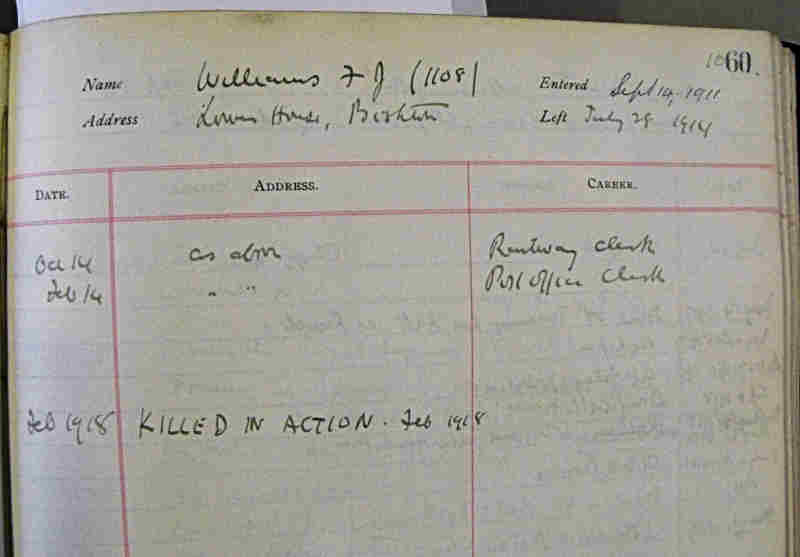 1060.
Name Williams F J (1108) Entered Sept 14, 1911
Address Lower House, Bishton Left July 29 1914
DATE. ADDRESS. CAREER.
Oct 14 as above Railway Clerk
Feb 14 " " Post office Clerk
Feb 1918 KILLED IN ACTION. Feb 1918